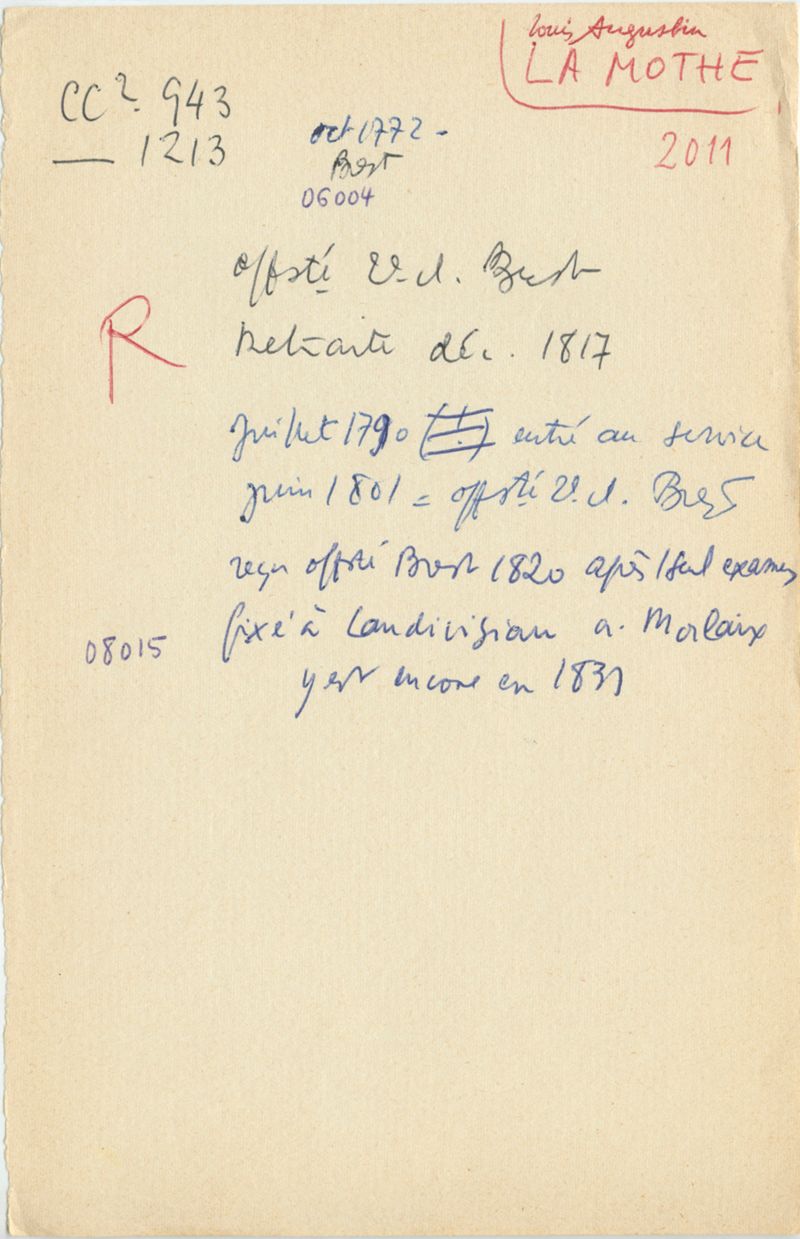 Louis Augustin
LA MOTHE
2011
CC2. 943
— 1213
oct 1772 -
Brest
06004
offsté 2e cl. Brest
R
Retraite déc. 1817
Juillet 1790 (!) entré au service
juin 1801 = offsté 2e cl. Brest
reçu offsté Brest 1820 après 1 seul examen
fixé à Landivisiau a. Morlaix
08015
y est encore en 1831